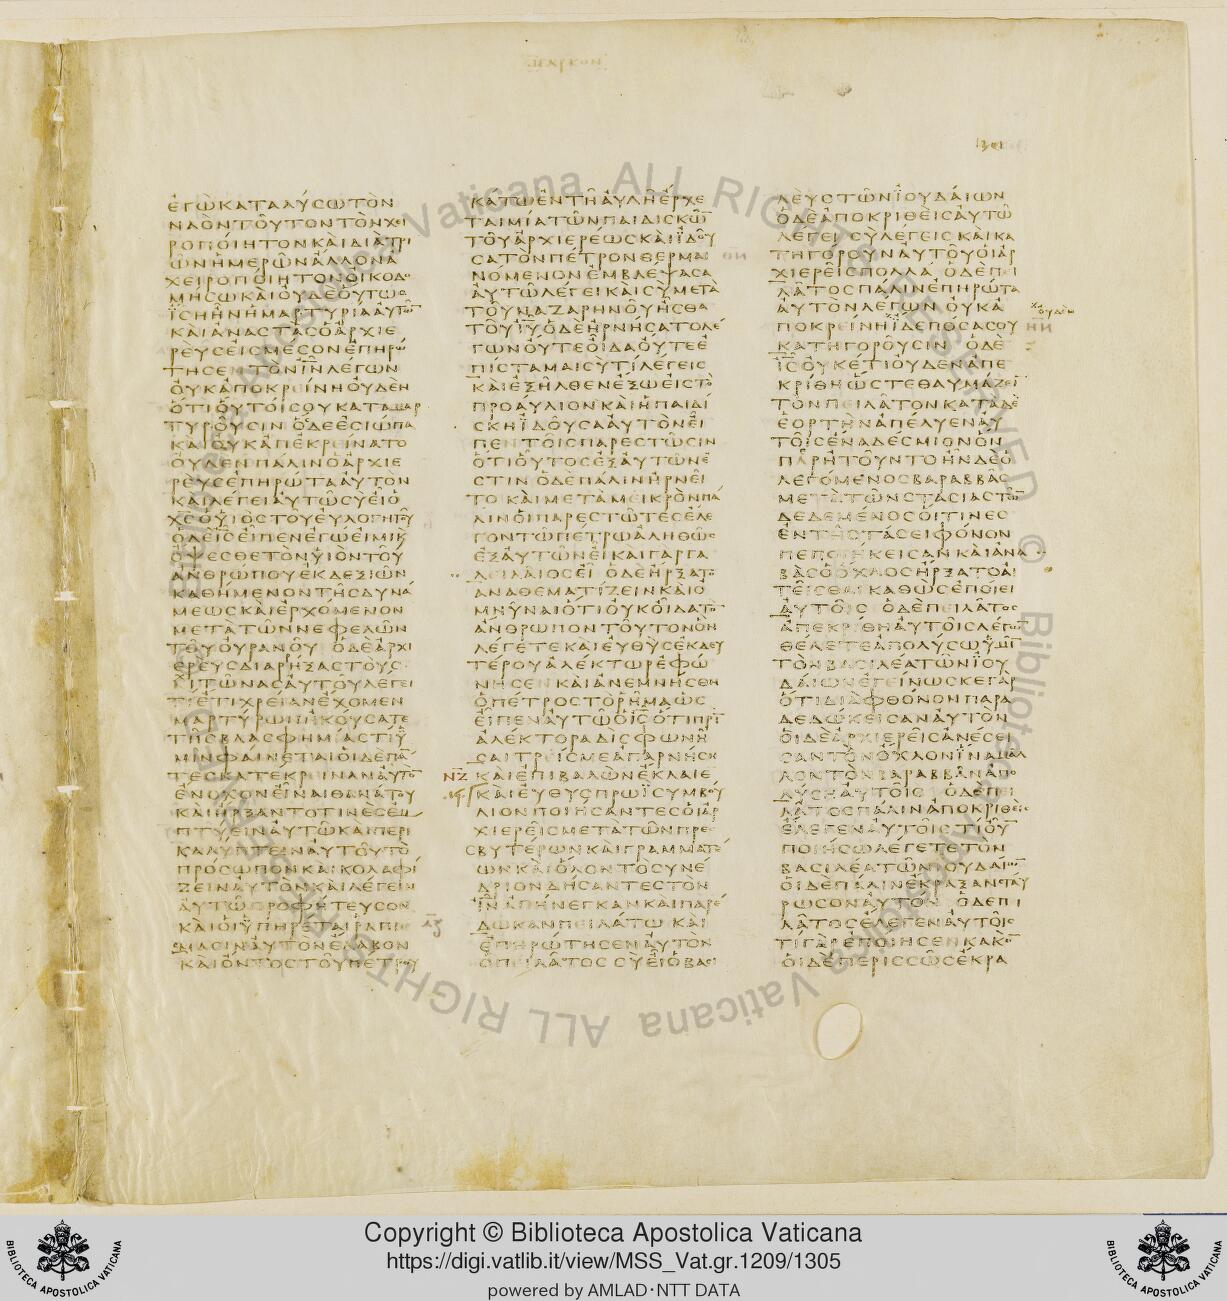 ΜΑΡΚΟΝ
ΕΓΩΚΑΤΑΛΥΣΩΤΟΝ
ΝΑΟΝΤΟΥΤΟΝΤΟΝΧΕΙ
ΡΟΠΟΙΗΤΟΝΚΑΙΔΙΑΤΡΙ
ΩΝΗΜΕΡΩΝΑΛΛΟΝΑ
ΧΕΙΡΟΠΟΙΗΤΟΝΟΙΚΟΔΟ
ΜΗΣΩΚΑΙΟΥΔΕΟΥΤΩΣ
ΙΣΗΗΝΗΜΑΡΤΥΡΙΑΑΥΤΩ̅
ΚΑΙΑΝΑΣΤΑΣΟΑΡΧΙΕ
ΡΕΥΣΕΙΣΜΕΣΟΝΕΠΗΡΩ
ΤΗΣΕΝΤΟΝΙ̅Ν̅ΛΕΓΩΝ
ΟΥΚΑΠΟΚΡΕΙΝΗΟΥΔΕΝ
ΟΤΙΟΥΤΟΙΣΟΥΚΑΤΑΜΑΡ
ΤΥΡΟΥΣΙΝ ΟΔΕΕΣΙΩΠΑ
ΚΑΙΟΥΚΑΠΕΚΡΕΙΝΑΤΟ
ΟΥΔΕΝΠΑΛΙΝΟΑΡΧΙΕ
ΡΕΥΣΕΠΗΡΩΤΑΑΥΤΟΝ
ΚΑΙΛΕΓΕΙΑΥΤΩΣΥΕΙΟ
ΧΣΟΥΙΟΣΤΟΥΕΥΛΟΓΗΤΟΥ
ΟΔΕΙ̅Σ̅ΕΙΠΕΝΕΓΩΕΙΜΙΚ
ΟΨΕΣΘΕΤΟΝΥΙΟΝΤΟΥ
ΑΝΘΡΩΠΟΥΕΚΔΕΞΙΩΝ
ΚΑΘΗΜΕΝΟΝΤΗΣΔΥΝΑ
ΜΕΩΣΚΑΙΕΡΧΟΜΕΝΟΝ
ΜΕΤΑΤΩΝΝΕΦΕΛΩΝ
ΤΟΥΟΥΡΑΝΟΥ ΟΔΕΑΡΧΙ
ΕΡΕΥΣΔΙΑΡΗΞΑΣΤΟΥΣ
ΧΙΤΩΝΑΣΑΥΤΟΥΛΕΓΕΙ
ΤΙΕΤΙΧΡΕΙΑΝΕΧΟΜΕΝ
ΜΑΡΤΥΡΩΝΗΚΟΥΣΑΤΕ
ΤΗΣΒΛΑΣΦΗΜΙΑΣΤΙΥ
ΜΙΝΦΑΙΝΕΤΑΙΟΙΔΕΠΑ
ΤΕΣΚΑΤΕΚΡΕΙΝΑΝΑΥΤΟ̅
ΕΝΟΧΟΝΕΙΝΑΙΘΑΝΑΤΟΥ
ΚΑΙΗΡΞΑΝΤΟΤΙΝΕΣΕΜ
ΠΤΥΕΙΝΑΥΤΩΚΑΙΠΕΡΙ
ΚΑΛΥΠΤΕΙΝΑΥΤΟΥΤΟ
ΠΡΟΣΩΠΟΝΚΑΙΚΟΛΑΦΙ
ΖΕΙΝΑΥΤΟΝΚΑΙΛΕΓΕΙΝ
ΑΥΤΩΠΡΟΦΗΤΕΥΣΟΝ
ΚΑΙΟΙΥΠΗΡΕΤΑΙΡΑΠΙΣ
ΜΑΣΙΝΑΥΤΟΝΕΛΑΒΟΝ
ΚΑΙΟΝΤΟΣΤΟΥΠΕΤΡΟΥ
ΚΑΤΩΕΝΤΗΑΥΛΗΕΡΧΕ
ΤΑΙΜΙΑΤΩΝΠΑΙΔΙΣΚΩ̅
ΤΟΥΑΡΧΙΕΡΕΩΣΚΑΙΪΔΟΥ
ΣΑΤΟΝΠΕΤΡΟΝΘΕΡΜΑΙ
ΝΟΜΕΝΟΝΕΜΒΛΕΨΑΣΑ
ΑΥΤΩΛΕΓΕΙΚΑΙΣΥΜΕΤΑ
ΤΟΥΝΑΖΑΡΗΝΟΥΗΣΘΑ
ΤΟΥΙ̅Υ̅ΟΔΕΗΡΝΗΣΑΤΟΛΕ
ΓΩΝΟΥΤΕΟΙΔΑΟΥΤΕΕ
ΠΙΣΤΑΜΑΙΣΥΤΙΛΕΓΕΙΣ
ΚΑΙΕΞΗΛΘΕΝΕΞΩΕΙΣΤΟ
ΠΡΟΑΥΛΙΟΝΚΑΙΗΠΑΙΔΙ
ΣΚΗΪΔΟΥΣΑΑΥΤΟΝΕΙ
ΠΕΝΤΟΙΣΠΑΡΕΣΤΩΣΙΝ
ΟΤΙΟΥΤΟΣΕΞΑΥΤΩΝΕ
ΣΤΙΝ ΟΔΕΠΑΛΙΝΗΡΝΕΙ
ΤΟ ΚΑΙΜΕΤΑΜΕΙΚΡΟΝΠΑ
ΛΙΝΟΙΠΑΡΕΣΤΩΤΕΣΕΛΕ
ΓΟΝΤΩΠΕΤΡΩΑΛΗΘΩΣ
ΕΞΑΥΤΩΝΕΙΚΑΙΓΑΡΓΑ
ΛΕΙΛΑΙΟΣΕΙ ΟΔΕΗΡΞΑΤΟ
ΑΝΑΘΕΜΑΤΙΖΕΙΝΚΑΙΟ
ΜΝΥΝΑΙΟΤΙΟΥΚΟΙΔΑΤΟ̅
ΑΝΘΡΩΠΟΝΤΟΥΤΟΝΟΝ
ΛΕΓΕΤΕΚΑΙΕΥΘΥΣΕΚΔΕΥ
ΤΕΡΟΥΑΛΕΚΤΩΡΕΦΩ
ΝΗΣΕΝΚΑΙΑΝΕΜΝΗΣΘΗ
ΟΠΕΤΡΟΣΤΟΡΗΜΑΩΣ
ΕΙΠΕΝΑΥΤΩΟΙ̅Σ̅ΟΤΙΠΡΙ̅
ΑΛΕΚΤΟΡΑΔΙΣΦΩΝΗ
ΣΑΙΤΡΕΙΣΜΕΑΠΑΡΝΗΣΗ
Ν̅Ζ̅ ΚΑΙΕΠΙΒΑΛΩΝΕΚΛΑΙΕ
ΚΑΙΕΥΘΥΣΠΡΩΪΣΥΜΒΟΥ
ΛΙΟΝΠΟΙΗΣΑΝΤΕΣΟΙΑΡ
ΧΙΕΡΕΙΣΜΕΤΑΤΩΝΠΡΕ
ΣΒΥΤΕΡΩΝΚΑΙΓΡΑΜΜΑΤΕ
ΩΝΚΑΙΟΛΟΝΤΟΣΥΝΕ
ΔΡΙΟΝΔΗΣΑΝΤΕΣΤΟΝ
Ι̅Ν̅ΑΠΗΝΕΓΚΑΝΚΑΙΠΑΡΕ
ΔΩΚΑΝΠΕΙΛΑΤΩ ΚΑΙ
ΕΠΗΡΩΤΗΣΕΝΑΥΤΟΝ
ΟΠΕΙΛΑΤΟΣΣΥΕΙΟΒΑΣΙ
ΛΕΥΣΤΩΝΪΟΥΔΑΙΩΝ
ΟΔΕΑΠΟΚΡΙΘΕΙΣΑΥΤΩ
ΛΕΓΕΙ ΣΥΛΕΓΕΙΣΚΑΙΚΑ
ΤΗΓΟΡΟΥΝΑΥΤΟΥΟΙΑΡ
ΧΙΕΡΕΙΣΠΟΛΛΑ ΟΔΕΠΕΙ
ΛΑΤΟΣΠΑΛΙΝΕΠΗΡΩΤΑ
ΑΥΤΟΝΛΕΓΩΝ ΟΥΚΑ
ΠΟΚΡΕΙΝΗΪΔΕΠΟΣΑΣΟΥ
ΚΑΤΗΓΟΡΟΥΣΙΝ ΟΔΕ
Ι̅Σ̅ΟΥΚΕΤΙΟΥΔΕΝΑΠΕ
ΚΡΙΘΗΩΣΤΕΘΑΥΜΑΖΕΙ̅
ΤΟΝΠΕΙΛΑΤΟΝΚΑΤΑΔΕ
ΕΟΡΤΗΝΑΠΕΛΥΕΝΑΥ
ΤΟΙΣΕΝΑΔΕΣΜΙΟΝΟΝ
ΠΑΡΗΤΟΥΝΤΟΗΝΔΕΟ
ΛΕΓΟΜΕΝΟΣΒΑΡΑΒΒΑΣ
ΜΕΤΑΤΩΝΣΤΑΣΙΑΣΤΩ̅
ΔΕΔΕΜΕΝΟΣΟΙΤΙΝΕΣ
ΕΝΤΗΣΤΑΣΕΙΦΟΝΟΝ
ΠΕΠΟΙΗΚΕΙΣΑΝΚΑΙΑΝΑ
ΒΑΣΟΟΧΛΟΣΗΡΞΑΤΟΑΙ
ΤΕΙΣΘΑΙΚΑΘΩΣΕΠΟΙΕΙ
ΑΥΤΟΙΣ ΟΔΕΠΕΙΛΑΤΟΣ
ΑΠΕΚΡΙΘΗΑΥΤΟΙΣΛΕΓΩ̅
ΘΕΛΕΤΕΑΠΟΛΥΣΩΥΜΙ̅
ΤΟΝΒΑΣΙΛΕΑΤΩΝΪΟΥ
ΔΑΙΩΝΕΓΕΙΝΩΣΚΕΓΑΡ
ΟΤΙΔΙΑΦΘΟΝΟΝΠΑΡΑ
ΔΕΔΩΚΕΙΣΑΝΑΥΤΟΝ
ΟΙΔΕΑΡΧΙΕΡΕΙΣΑΝΕΣΕΙ
ΣΑΝΤΟΝΟΧΛΟΝΪΝΑΜΑΛ
ΛΟΝΤΟΝΒΑΡΑΒΒΑΝΑΠΟ
ΛΥΣΗΑΥΤΟΙΣ ΟΔΕΠΕΙ
ΛΑΤΟΣΠΑΛΙΝΑΠΟΚΡΙΘΕΙΣ
ΕΛΕΓΕΝΑΥΤΟΙΣΤΙΟΥ̅
ΠΟΙΗΣΩΛΕΓΕΤΕΤΟΝ
ΒΑΣΙΛΕΑΤΩΝΪΟΥΔΑΙΩ̅
ΟΙΔΕΠΑΛΙΝΕΚΡΑΞΑΝΣΤΑΥ
ΡΩΣΟΝΑΥΤΟΝ ΟΔΕΠΕΙ
ΛΑΤΟΣΕΛΕΓΕΝΑΥΤΟΙΣ
ΤΙΓΑΡΕΠΟΙΗΣΕΝΚΑΚΟ̅
ΟΙΔΕΠΕΡΙΣΣΩΣΕΚΡΑ
ΟΥΔΕΝ
Copyright © Biblioteca Apostolica Vaticana
https://digi.vatlib.it/view/MSS_Vat.gr.1209/1305
powered by AMLAD·NTT DATA